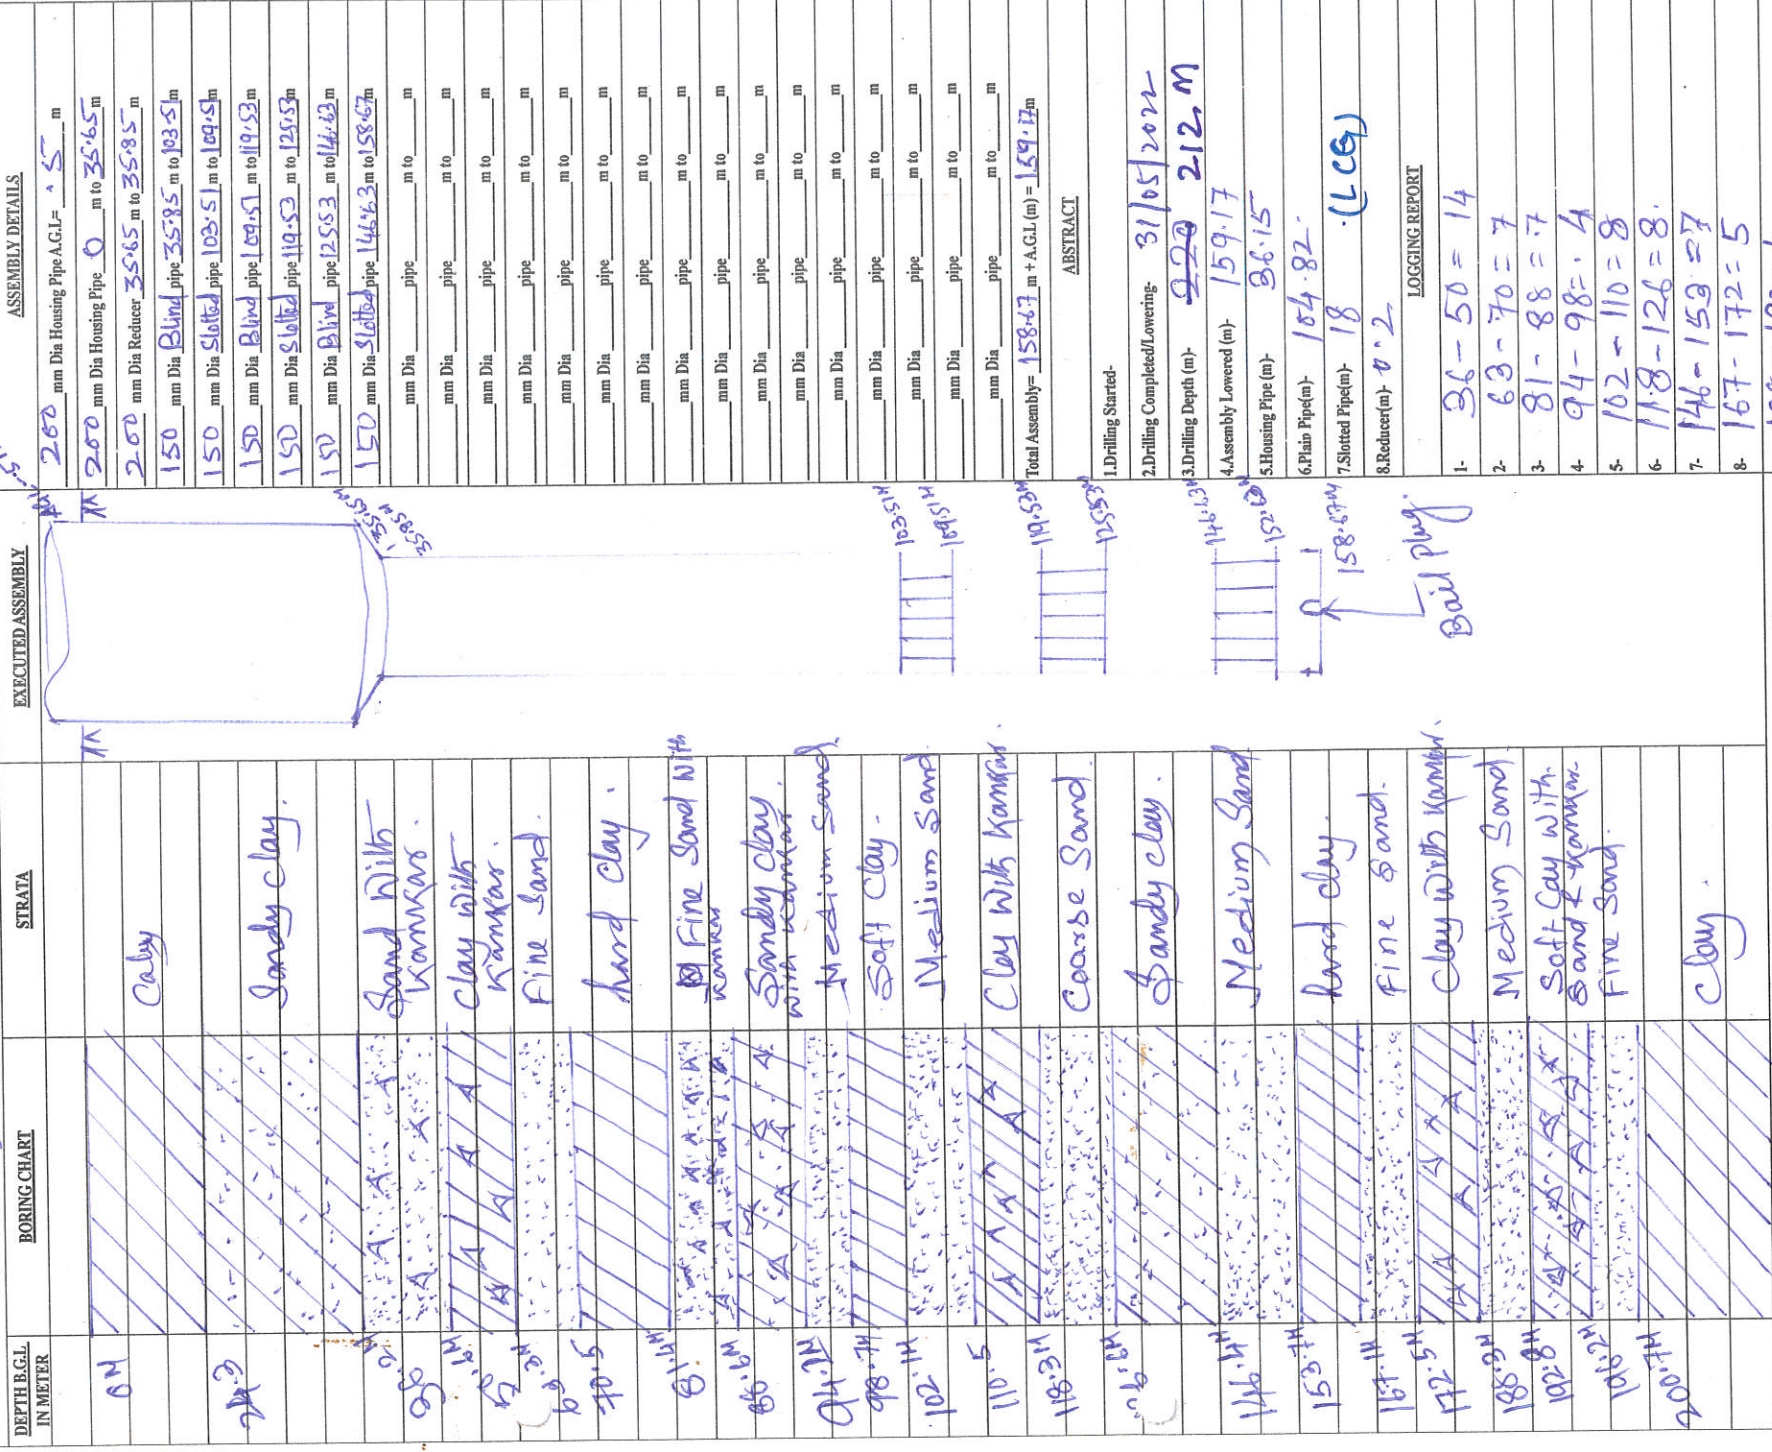 DEPTH B.G.L
IN METER
BORING CHART
STRATA
EXECUTED ASSEMBLY
ASSEMBLY DETAILS
0M
Calay
24.3
Sandy Clay.
Sand With
Kankar.
Clay With
Kankar.
Fine Sand.
63.3M
70.5
hard Clay.
81.1M
Fine Sand With
Kankar
Sandy Clay
With Kankar.
94.2M
Medium Sand
98.7M
Soft Clay.
102.1M
Medium Sand
110.5
Clay With Kankar.
118.3M
Coarse Sand.
Sandy Clay.
146.4M
Medium Sand
153.7M
hard clay.
167.1M
Fine Sand.
172.5M
Clay With Kankar.
Medium Sand
192.8M
Soft Cay With
Sand & Kankar
Fine Sand.
200.7M
Clay.
35.65M
35.85M
103.51M
109.51M
119.53M
125.53M
146.63M
152.63M
158.67M
Bail Plug.
200 mm Dia Housing Pipe A.G.L= .5 m
200 mm Dia Housing Pipe 0 m to 35.65 m
200 mm Dia Reducer 35.65 m to 35.85 m
150 mm Dia Blind pipe 35.85 m to 103.51 m
150 mm Dia Slotted pipe 103.51 m to 109.51 m
150 mm Dia Blind pipe 109.51 m to 119.53 m
150 mm Dia Slotted pipe 119.53 m to 125.53 m
150 mm Dia Blind pipe 125.53 m to 146.63 m
150 mm Dia Slotted pipe 146.63 m to 158.67 m
mm Dia pipe m to m
mm Dia pipe m to m
mm Dia pipe m to m
mm Dia pipe m to m
mm Dia pipe m to m
mm Dia pipe m to m
mm Dia pipe m to m
mm Dia pipe m to m
mm Dia pipe m to m
mm Dia pipe m to m
mm Dia pipe m to m
mm Dia pipe m to m
mm Dia pipe m to m
mm Dia pipe m to m
mm Dia pipe m to m
mm Dia pipe m to m
Total Assembly= 158.67 m + A.G.L (m) = 159.17 m
ABSTRACT
1.Drilling Started-
2.Drilling Completed/Lowering- 31/05/2022
3.Drilling Depth (m)- 220 212 M
4.Assembly Lowered (m)- 159.17
5.Housing Pipe (m)- 36.15
6.Plain Pipe(m)- 104.82.
7.Slotted Pipe(m)- 18 (LCG)
8.Reducer(m)- 0.2
LOGGING REPORT
1- 36 - 50 = 14
2- 63 - 70 = 7
3- 81 - 88 = 7
4- 94 - 98 = 4
5- 102 - 110 = 8
6- 118 - 126 = 8.
7- 146 - 153 = 7
8- 167 - 172 = 5